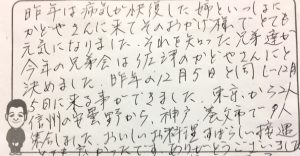 昨年は病気が快復した姉といっしょに
かどやさんに来てそのおかげ様でとても
元気になりました。それを知った兄弟達が
今年の兄弟会は佐津のかどやさんにと
決めました。昨年の12月5日と同じ12月
5日に来る事ができました。東京から2人
信州の安曇野から、神戸、養父市で
来ました。おいしいお料理すばらしい接遇
とても良かったですありがとうございました